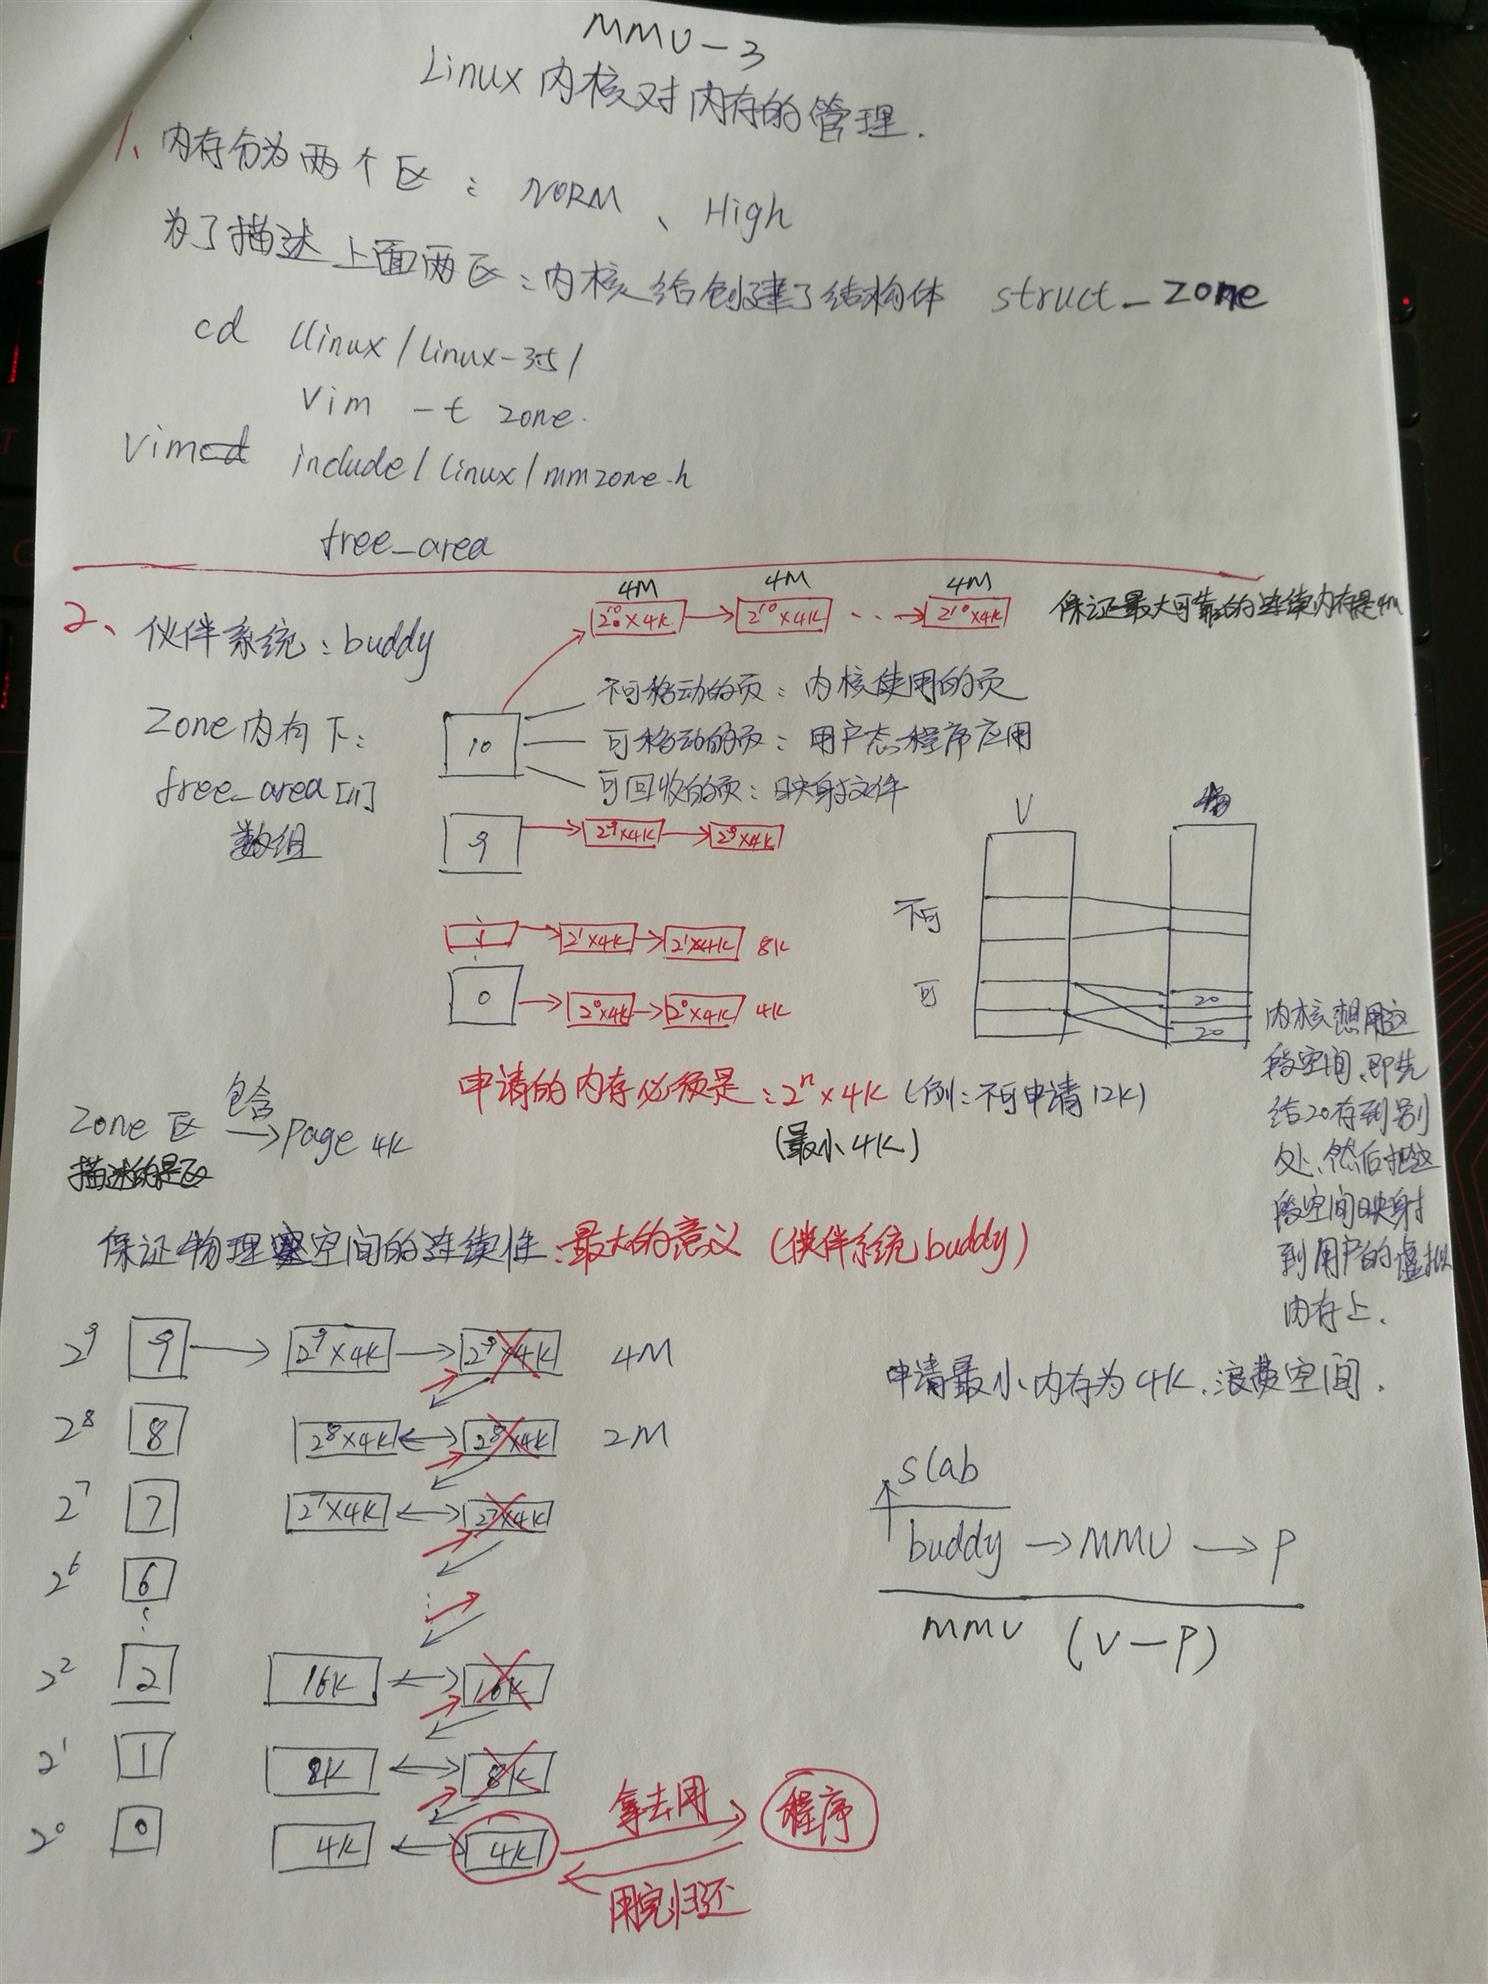 MMU-3
Linux 内核对内存的管理.
1、内存分为两个区：NORM、High
为了描述上面两区：内核给创建了结构体 struct_zone
cd linux/linux-35/
vim -t zone.
vim include/linux/mmzone.h
free_area
2、伙伴系统：buddy
4M 4M 4M
2^10×4K 2^10×4K ... 2^10×4K
保证最大可靠的连续内存是4M
zone内有下：
free_area[11]
数组
10
不可移动的页：内核使用的页
可移动的页：用户态程序应用
可回收的页：映射文件
9 2^9×4K 2^9×4K
1 2^1×4K 2^1×4K 8K
0 2^0×4K 2^0×4K 4K
V 物
不可
可
20
20
内核想用这
段空间,即先
给20存到别
处,然后把这
段空间映射
到用户的虚拟
内存上.
申请的内存必须是：2^n×4K（例：不可申请12K）
（最小4K）
zone 区 包含 page 4K
描述的是区
保证物理空间的连续性：最大的意义（伙伴系统buddy）
2^9 9 2^9×4K 2^9×4K 4M
2^8 8 2^8×4K 2^8×4K 2M
2^7 7 2^7×4K 2^7×4K
2^6 6
2^2 2 16K 16K
2^1 1 8K 8K
2^0 0 4K 4K
拿去用
程序
用完归还
申请最小内存为4K,浪费空间.
slab
buddy → MMU → P
MMU (V-P)